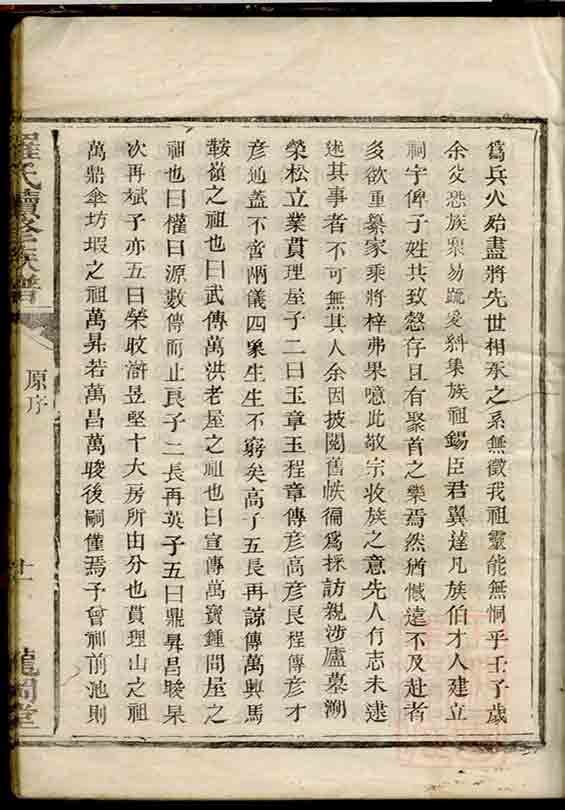 爲兵火殆盡將先世相承之系無徵我祖靈能無恫乎壬子歲
余父恐族眾易疏爰糾集族祖錫臣君翼達凡族伯才人建立
祠宇俾子姓共致愨存且有聚首之樂焉然猶憾遠不及赴者
多欲重纂家乘將梓弗果噫此敬宗收族之意先人有志未逮
述其事者不可無其人余因披閱舊帙徧爲採訪親涉廬墓溯
榮松立業貫理屋子二曰玉章玉程章傳彥高彥良程傳彥才
彥通蓋不啻兩儀四象生生不窮矣高子五長再諒傳萬興馬
鞍嶺之祖也曰武傳萬洪老屋之祖也曰宣傳萬寶鍾問屋之
祖也曰權曰源數傳而止良子二長再英子五曰鼎昇昌駿杲
次再斌子亦五曰榮畋滸昱堅十大房所由分也貫理山之祖
萬鼎傘坊塅之祖萬昇若萬昌萬駿後嗣僅焉予曾祖前池則
羅氏續修族譜
原序
龍岡堂